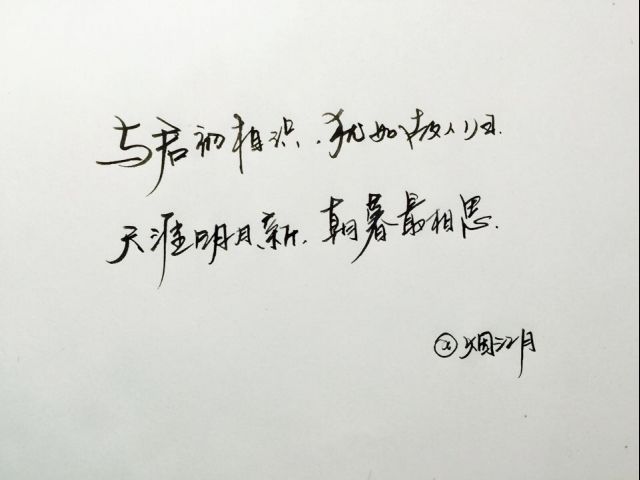 与君初相识，犹如故人归.
天涯明月新，朝暮最相思.
烟江月